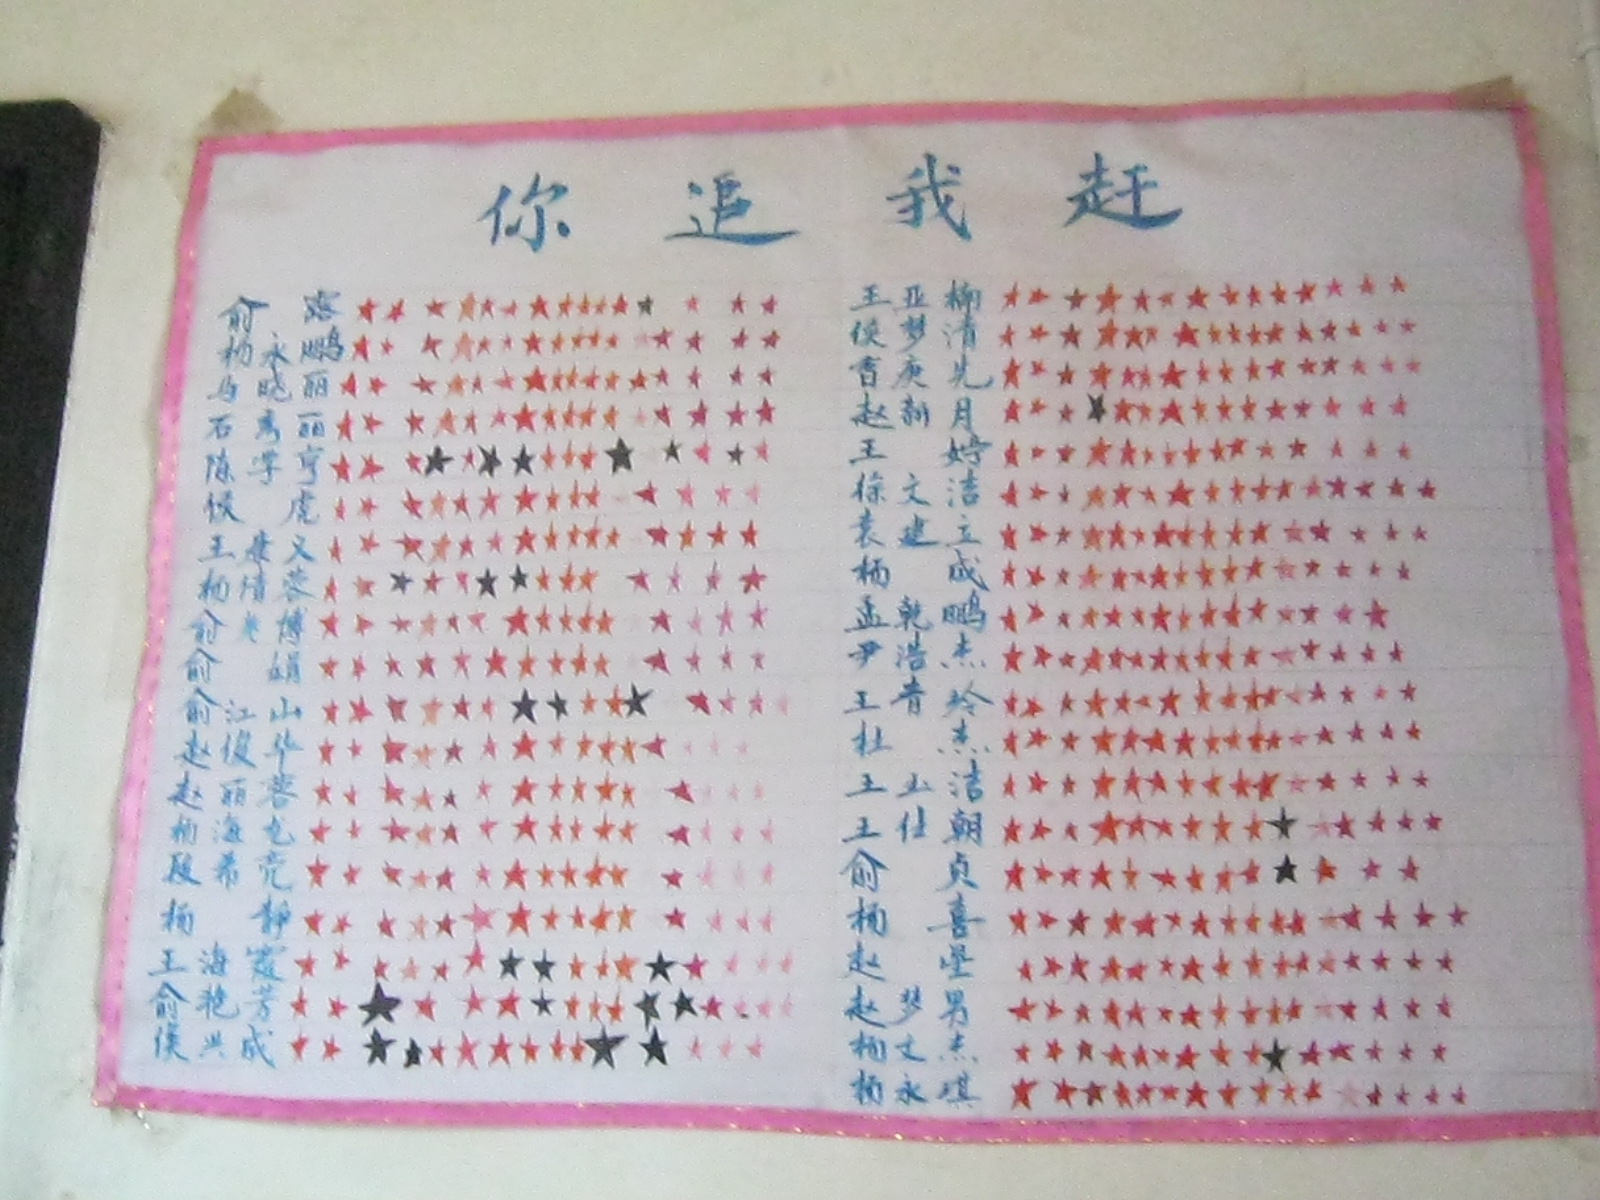 你追我赶
俞露
杨永鹏
马晓丽
石秀丽
陈学亨
侯虎
王建义
杨清蓉
俞博
俞娟
俞江山
赵俊华
赵丽蓉
杨海龙
段希亮
杨静
王海霞
俞艳芳
侯兴成
王亚柳
侯梦清
曹庚先
赵新月
王婷
徐文洁
袁建立
杨成
孟乾鹏
尹浩杰
王音玲
杜杰
王玉洁
王仕朝
俞贞
杨喜
赵莹
赵梦男
杨文杰
杨永琪